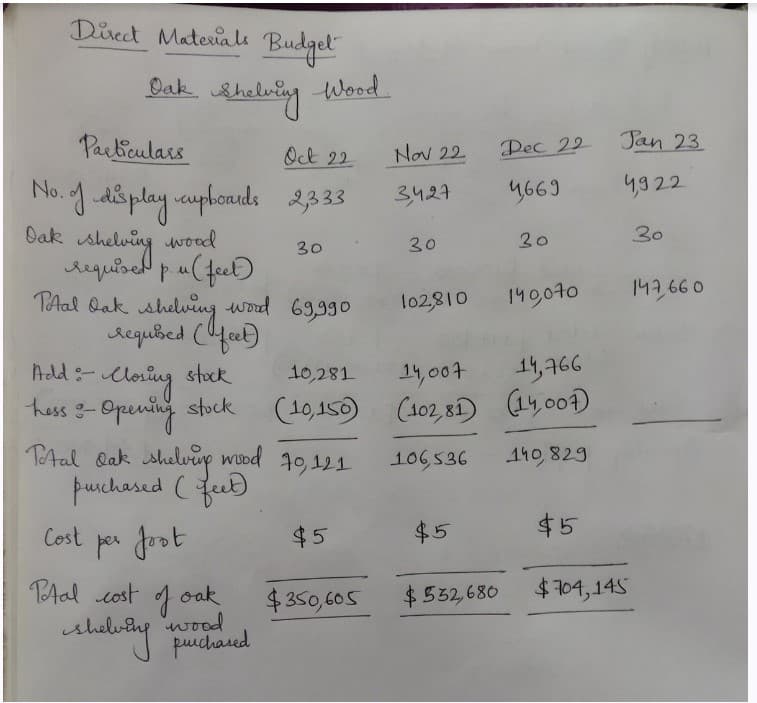 Direct Materials Budget
Oak shelving Wood
Particulars Oct 22 Nov 22 Dec 22 Jan 23
No. of display cupboards 2,333 3,427 4,669 4,922
Oak shelving wood
required p.u (feet) 30 30 30 30
Total Oak shelving wood 69,990 102,810 140,070 147,660
required (feet)
Add :- Closing stock 10,281 14,007 14,766
Less :- Opening stock (10,150) (102,81) (14,007)
Total Oak shelving wood 70,121 106,536 140,829
purchased (feet)
Cost per foot $5 $5 $5
Total cost of oak $350,605 $532,680 $704,145
shelving wood
purchased